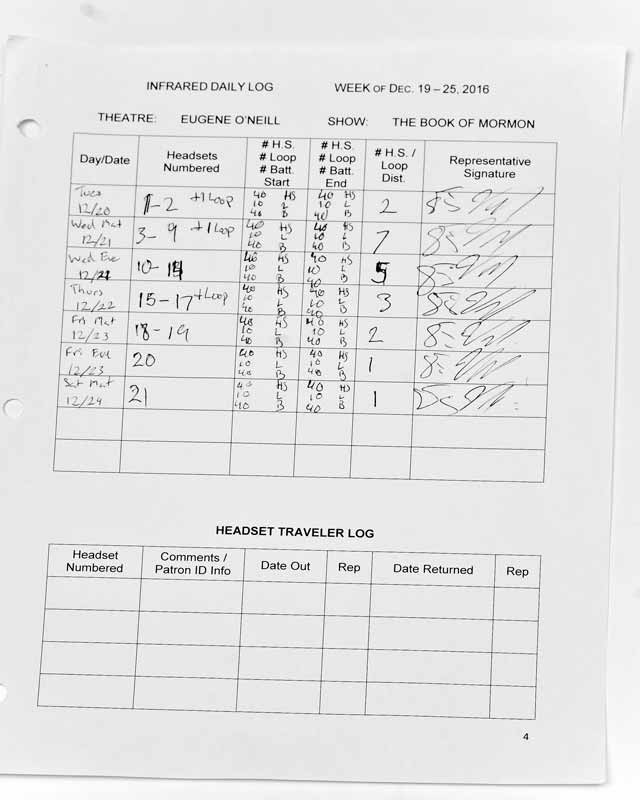 INFRARED DAILY LOG WEEK OF DEC. 19 – 25, 2016
THEATRE: EUGENE O'NEILL SHOW: THE BOOK OF MORMON
Day/Date Headsets Numbered # H.S. # Loop # Batt. Start # H.S. # Loop # Batt. End # H.S. / Loop Dist. Representative Signature
Tues 12/20 1-2 +1 Loop 40 HS 10 L 40 B 40 HS 10 L 40 B 2
Wed Mat 12/21 3-9 +1 Loop 40 HS 10 L 40 B 40 HS 10 L 40 B 7
Wed Eve 12/21 10- 40 HS 10 L 40 B 40 HS 10 L 40 B 5
Thurs 12/22 15-17 +Loop 40 HS 10 L 40 B 40 HS 10 L 40 B 3
Fri Mat 12/23 18-19 40 HS 10 L 40 B 40 HS 10 L 40 B 2
Fri Eve 12/23 20 40 HS 10 L 40 B 40 HS 10 L 40 B 1
Sat Mat 12/24 21 40 HS 10 L 40 B 40 HS 10 L 40 B 1
HEADSET TRAVELER LOG
Headset Numbered Comments / Patron ID Info Date Out Rep Date Returned Rep
4